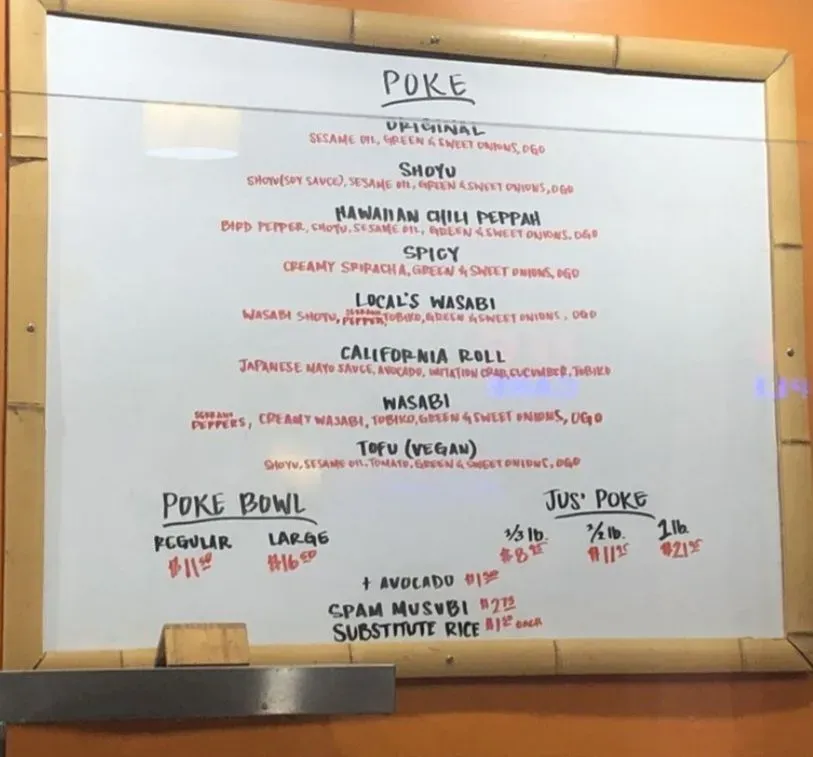 POKE
ORIGINAL
SESAME OIL, GREEN & SWEET ONIONS, OGO
SHOYU
SHOYU(SOY SAUCE), SESAME OIL, GREEN & SWEET ONIONS, OGO
HAWAIIAN CHILI PEPPAH
BIRD PEPPER, SHOYU, SESAME OIL, GREEN & SWEET ONIONS, OGO
SPICY
CREAMY SRIRACHA, GREEN & SWEET ONIONS, OGO
LOCAL'S WASABI
WASABI SHOYU, SERRANO PEPPER, TOBIKO, GREEN & SWEET ONIONS, OGO
CALIFORNIA ROLL
JAPANESE MAYO SAUCE, AVOCADO, IMITATION CRAB, CUCUMBER, TOBIKO
WASABI
SERRANO PEPPERS, CREAMY WASABI, TOBIKO, GREEN & SWEET ONIONS, OGO
TOFU (VEGAN)
SHOYU, SESAME OIL, TOMATO, GREEN & SWEET ONIONS, OGO
POKE BOWL JUS' POKE
REGULAR LARGE lb. lb. 1 lb.
+ AVOCADO
SPAM MUSUBI $2.75
SUBSTITUTE RICE EACH